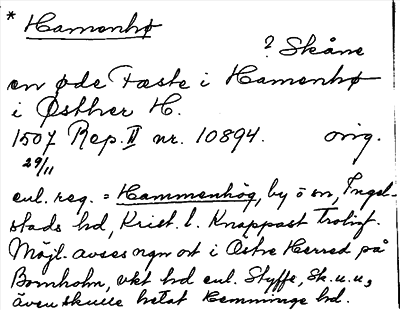 * Hamenhø
? Skåne
en øde Fæste i Hamenhø
i Østher H.
1507 Rep. II nr. 10894. orig.
29/11
enl. reg. = Hammenhög, by o sn, Ingel-
stads hd, Krist. l. Knappast troligt.
Möjl. avses ngn ort i Östre Herred på
Bornholm, vkt hd enl. Styffe, Sk.u.u,
även skulle hetat Hemminge hd.